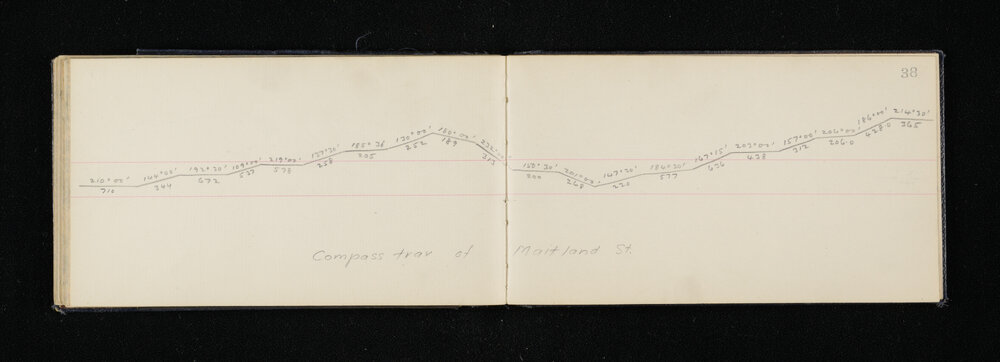 38
210°00'
710
144°02'
344
192°30'
572
109°00'
537
219°02'
578
127°30'
258
185°36'
205
130°00'
252
160°02'
189
150°30'
200
201°02'
268
147°20'
220
184°30'
577
147°15'
636
202°02'
438
157°00'
312
206°00'
206.0
186°00'
428.0
214°30'
365
Compass trav of Maitland St.